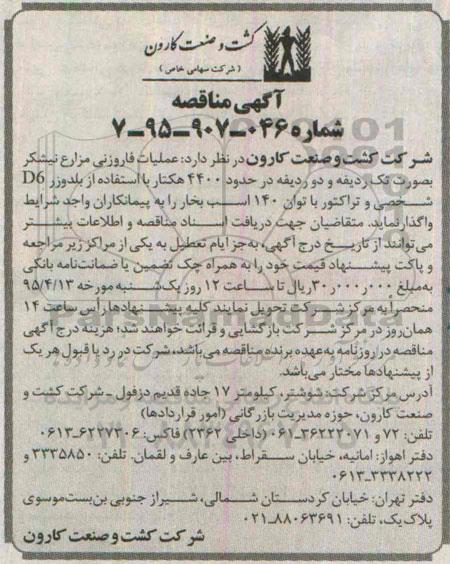 کشت و صنعت کارون
( شرکت سهامی خاص )
آگهی مناقصه
شماره ۰۴۶-۹۰۷-۹۵-۷
شرکت کشت و صنعت کارون در نظر دارد: عملیات فاروزنی مزارع نیشکر
بصورت تک ردیفه و دو ردیفه در حدود ۴۴۰۰ هکتار با استفاده از بلدوزر D6
شخصی و تراکتور با توان ۱۴۰ اسب بخار را به پیمانکاران واجد شرایط
واگذار نماید. متقاضیان جهت دریافت اسناد مناقصه و اطلاعات بیشتر
می‌توانند از تاریخ درج آگهی، به‌جز ایام تعطیل به یکی از مراکز زیر مراجعه
و پاکت پیشنهاد قیمت خود را به همراه چک تضمین یا ضمانت‌نامه بانکی
به‌مبلغ ۳۰٫۰۰۰٫۰۰۰ ریال تا ساعت ۱۲ روز یک‌شنبه مورخه ۹۵/۴/۱۳
منحصراً به مرکز شرکت تحویل نمایند کلیه پیشنهادها رأس ساعت ۱۴
همان‌روز در مرکز شرکت بازگشایی و قرائت خواهند شد؛ هزینه درج آگهی
مناقصه در روزنامه به‌عهده برنده مناقصه می‌باشد، شرکت در رد یا قبول هر یک
از پیشنهادها مختار می‌باشد.
آدرس مرکز شرکت: شوشتر، کیلومتر ۱۷ جاده قدیم دزفول ـ شرکت کشت و
صنعت کارون، حوزه مدیریت بازرگانی (أمور قراردادها)
تلفن: ۷۲ و ۳۶۲۲۲۰۷۱-۰۶۱ (داخلی ۲۳۶۲) فاکس: ۶۲۲۷۲۰۶-۰۶۱۳
دفتر اهواز: امانیه، خیابان سقراط، بین عارف و لقمان. تلفن: ۳۳۳۵۸۵۰ و
۳۳۳۸۲۲۲-۰۶۱۳
دفتر تهران: خیابان کردستان شمالی، شیراز جنوبی بن‌بست‌موسوی
پلاک یک، تلفن: ۸۸۰۶۳۶۹۱-۰۲۱
شرکت کشت و صنعت کارون